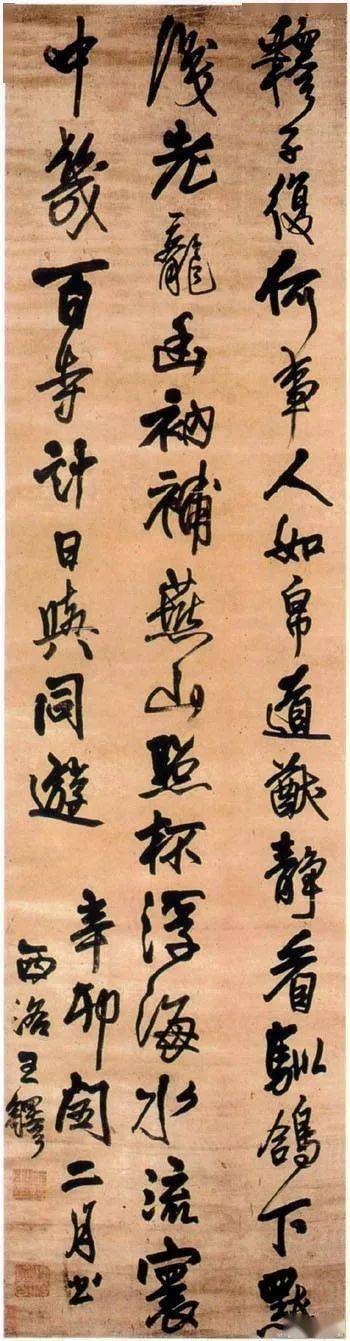 釋子復何事人如帛道猷靜看馴鴿下默
識老龍幽衲補燕山點杯浮海水流寰
中幾百寺計日與同遊
辛卯閏二月書
西洛王鐸